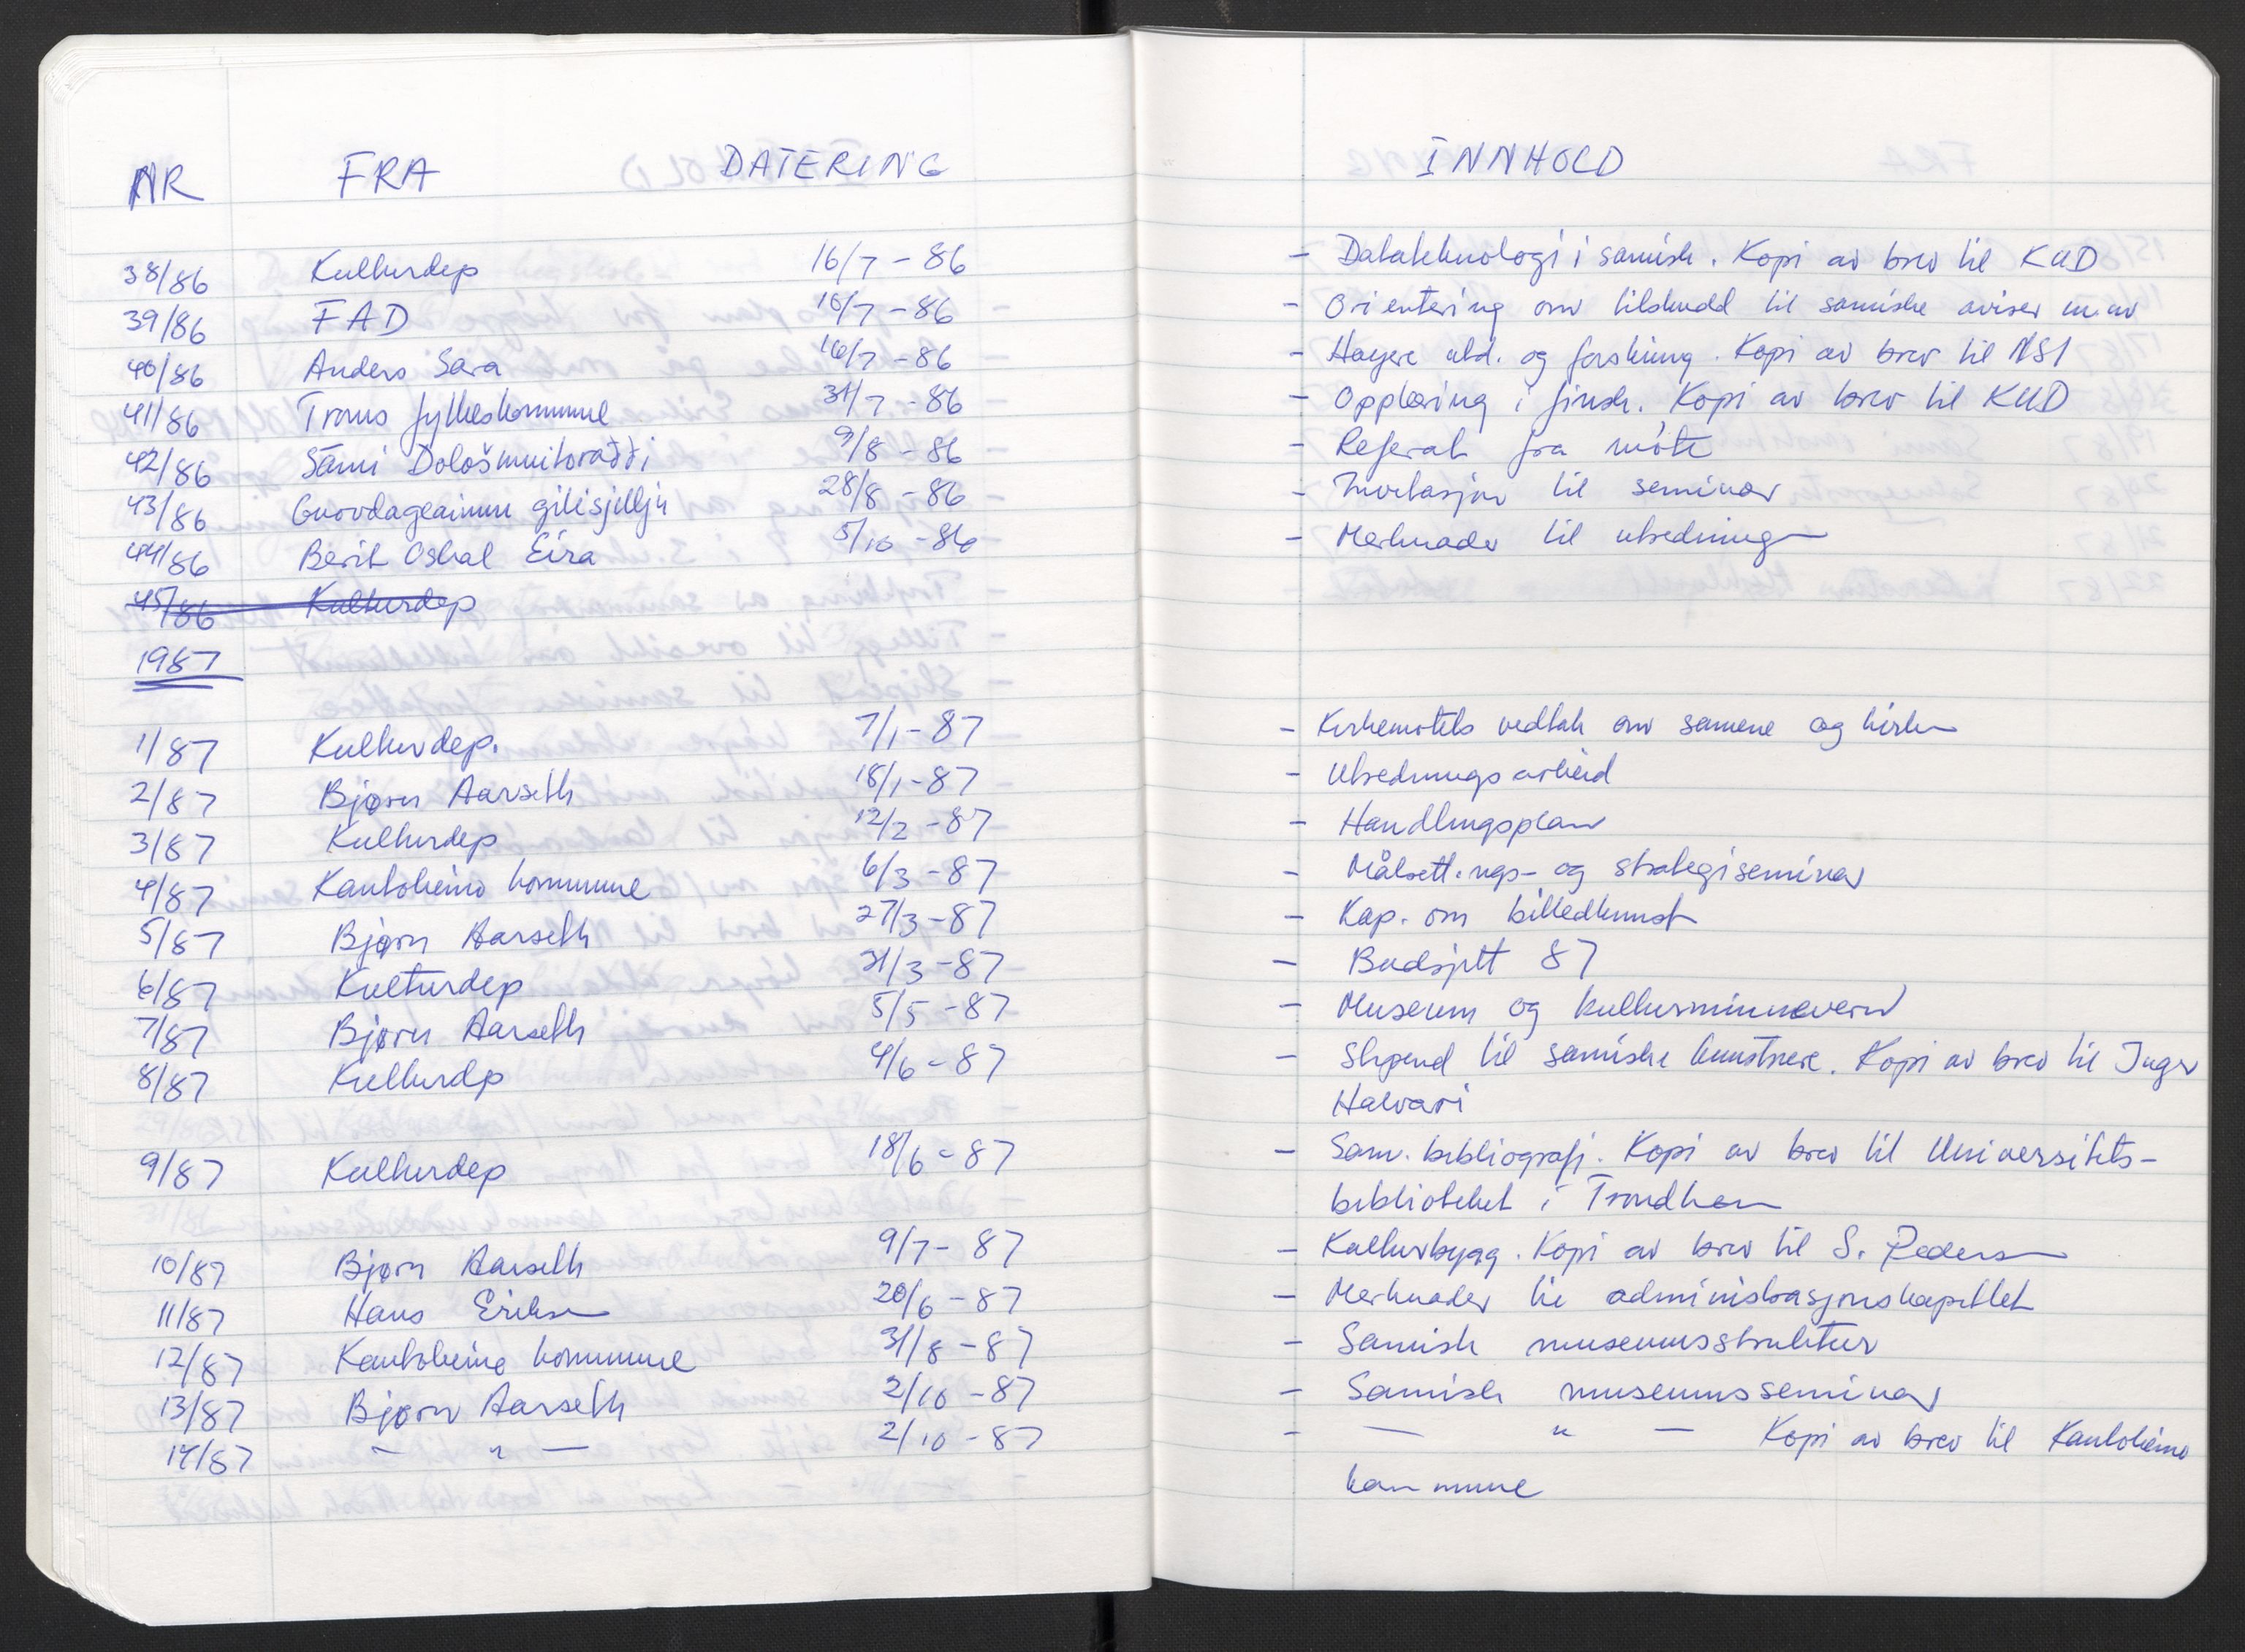 NR FRA DATERING INNHOLD
38/86 Kulturdep 16/7 - 86 - Datateknologi i samisk. Kopi av brev til KUD
39/86 FAD 16/7 - 86 - Orientering om tilskudd til samiske aviser m.m
40/86 Anders Sara 16/7 - 86 - Høyere utd. og forskning. Kopi av brev til NSI
41/86 Troms fylkeskommune 31/7 - 86 - Opplæring i finsk. Kopi av brev til KUD
42/86 Sámi Dološmuitorađđi 9/8 - 86 - Referat fra møte
43/86 Guovdageainnu gilisjillju 28/8 - 86 - Invitasjon til seminar
44/86 Berit Oskal Eira 5/10 - 86 - Merknader til utredningen
45/86 Kulturdep
1987
1/87 Kulturdep. 7/1 - 87 - Kirkemøtets vedtak om samene og kirken
2/87 Bjørn Aarseth 18/1 - 87 - Utredningsarbeid
3/87 Kulturdep 12/2 - 87 - Handlingsplan
4/87 Kautokeino kommune 6/3 - 87 - Målsettings- og strategiseminar
5/87 Bjørn Aarseth 27/3 - 87 - Kap. om billedkunst
6/87 Kulturdep 31/3 - 87 - Budsjett 87
7/87 Bjørn Aarseth 5/5 - 87 - Museum og kulturminnevern
8/87 Kulturdp 4/6 - 87 - Stipend til samiske kunstnere. Kopi av brev til Inger
Halvari
9/87 Kulturdep 18/6 - 87 - Sam. bibliografi. Kopi av brev til Universitets-
biblioteket i Trondheim
10/87 Bjørn Aarseth 9/7 - 87 - Kulturbygg. Kopi av brev til S. Pedersen
11/87 Hans Eriksen 20/6 - 87 - Merknader til administrasjonskapitlet
12/87 Kautokeino kommune 31/8 - 87 - Samisk museumsstruktur
13/87 Bjørn Aarseth 2/10 - 87 - Samisk museumsseminar
14/87 — " — 2/10 - 87 - — " — Kopi av brev til Kautokeino
kommune